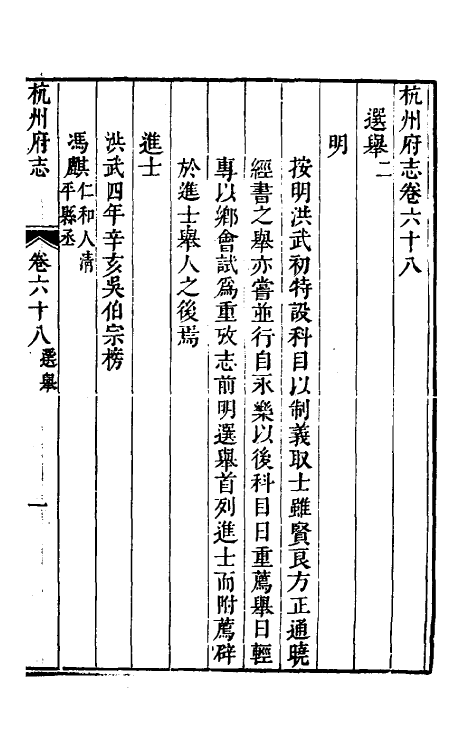 杭州府志卷六十八
選舉二
明
按明洪武初特設科目以制義取士雖賢良方正通曉
經書之舉亦嘗並行自永樂以後科目日重薦舉日輕
專以鄉會試爲重攷志前明選舉首列進士而附薦辟
於進士舉人之後焉
進士
洪武四年辛亥吳伯宗榜
馮麒仁和人清
平縣丞
杭州府志 卷六十八 選舉 一